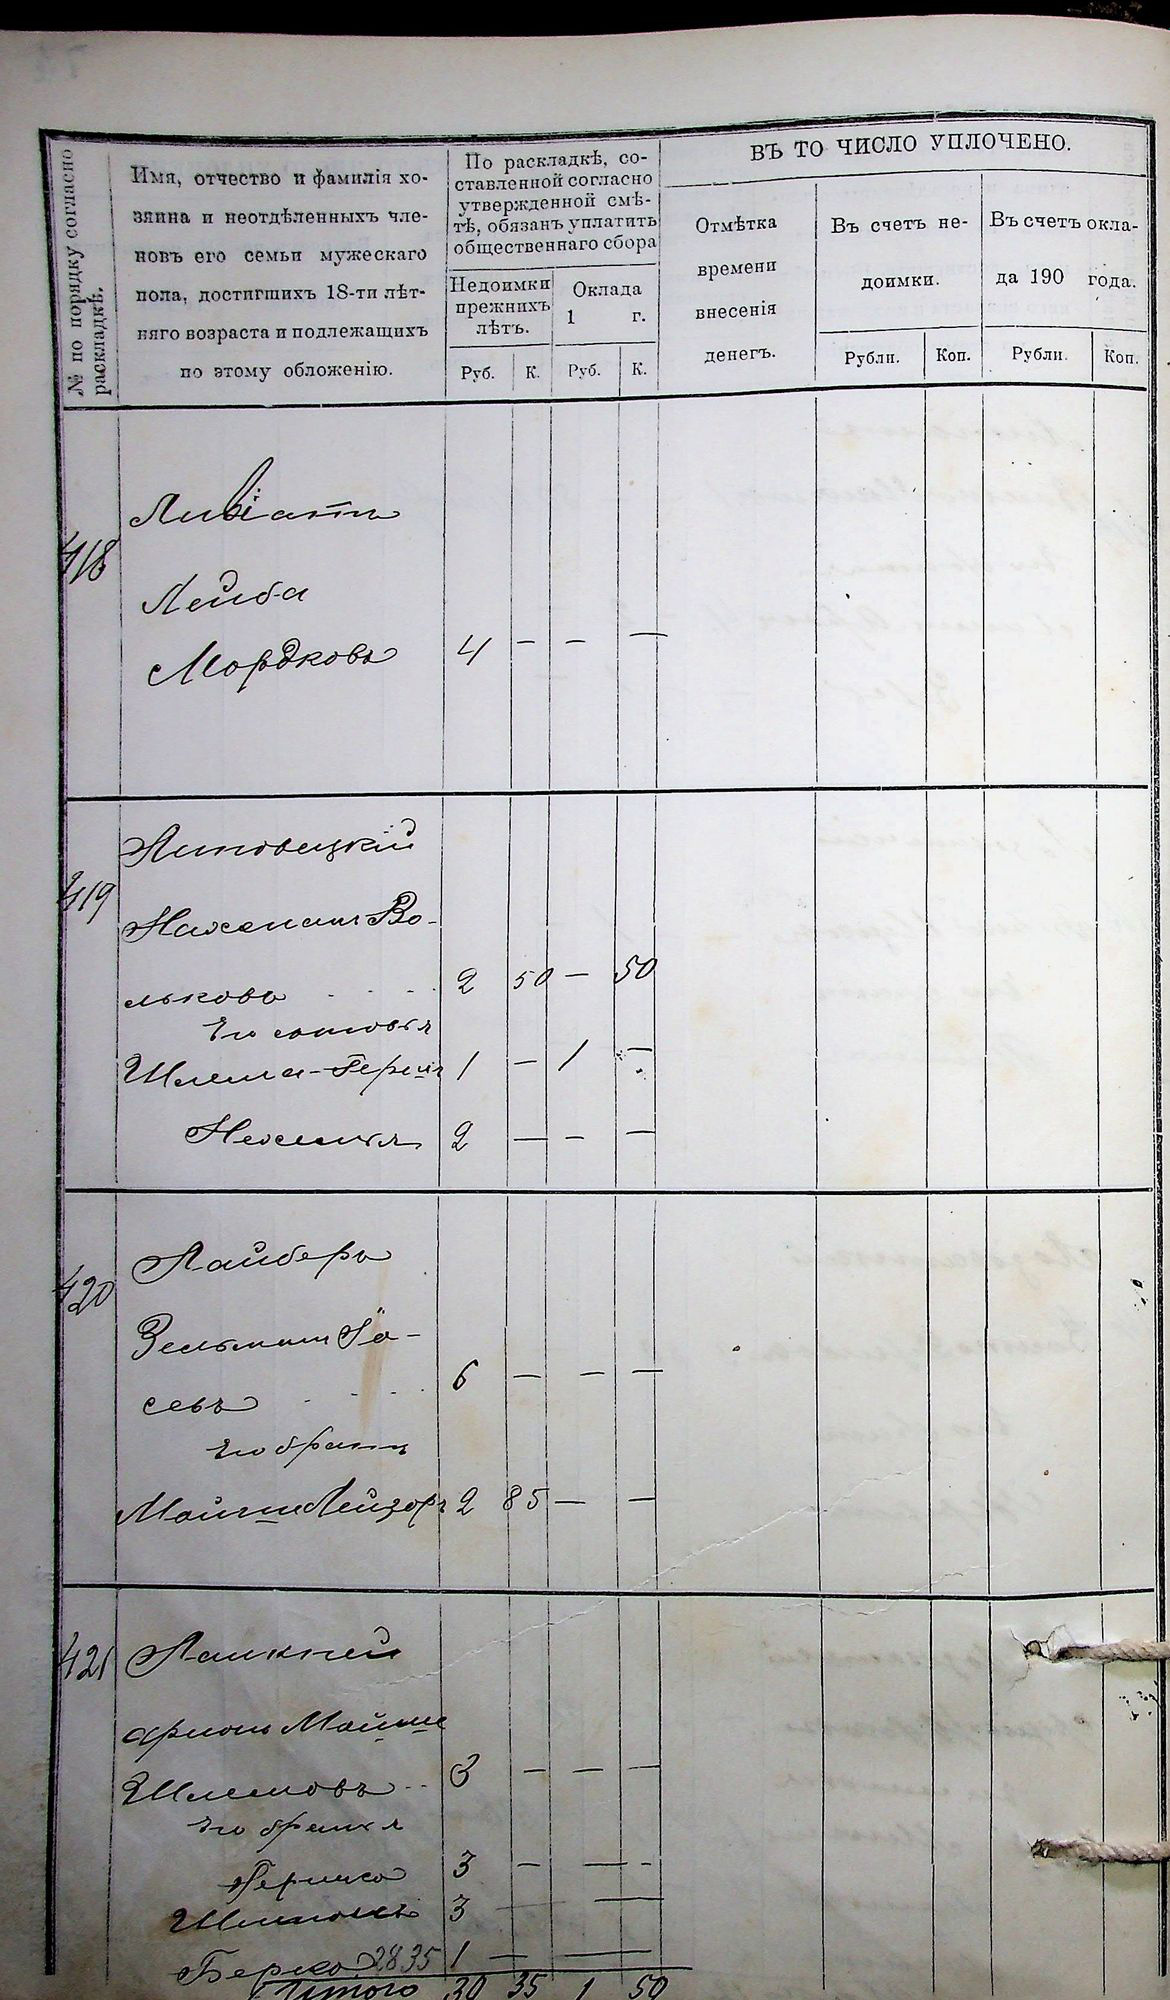 № по порядку согласно раскладкѣ.
Имя, отчество и фамилія хо-
зяина и неотдѣленныхъ чле-
новъ его семьи мужескаго
пола, достигшихъ 18-ти лѣт-
няго возраста и подлежащихъ
по этому обложенію.
По раскладкѣ, со-
ставленной согласно
утвержденной смѣ-
тѣ, обязанъ уплатить
общественнаго сбора
Недоимки
прежнихъ
лѣтъ.
Оклада
1 г.
Руб. К. Руб. К.
ВЪ ТО ЧИСЛО УПЛОЧЕНО.
Отмѣтка
времени
внесенія
денегъ.
Въ счетъ не-
доимки.
Въ счетъ окла-
да 190 года.
Рубли. Коп. Рубли. Коп.
418
Лейба
Мордковъ 4 — — —
419 Липовецкій
Нахманъ Во-
льковъ 2 50 — 50
Его сыновья
Шлема-Гершъ 1 — 1 —
Нехемья 2 — — —
420 Лайберъ
Зельманъ Іо-
севъ 6 — — —
Его братъ
Мойше Лейзоръ 2 85 — —
421
Мойше
Шлемовъ 3 — — —
Его братья
Гершко 3 — — -
Шимонъ 3 — —
Берко 2835 1 — —
Итого 30 35 1 50